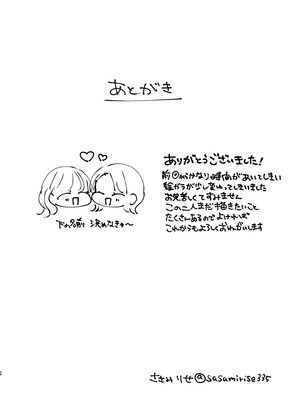 あとがき
ありがとうございました！
前回からかなり時間があいてしまい
絵ガラが少し変わってしまいました
お見苦しくてすみません
この二人まだ描きたいこと
たくさんあるのでよければ
これからもよろしくおねがいします
下の名前 決めなきゃ〜
ささみりせ@sasamirise335